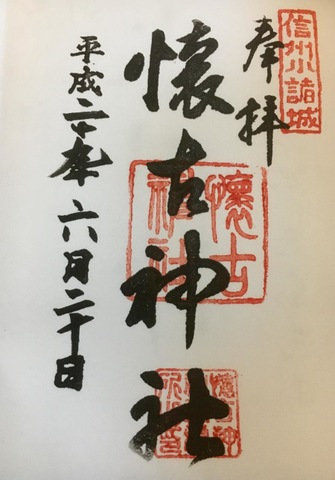 信州小諸城
奉拝
懐古神社
懷古
神社
平成二十年六月二十日